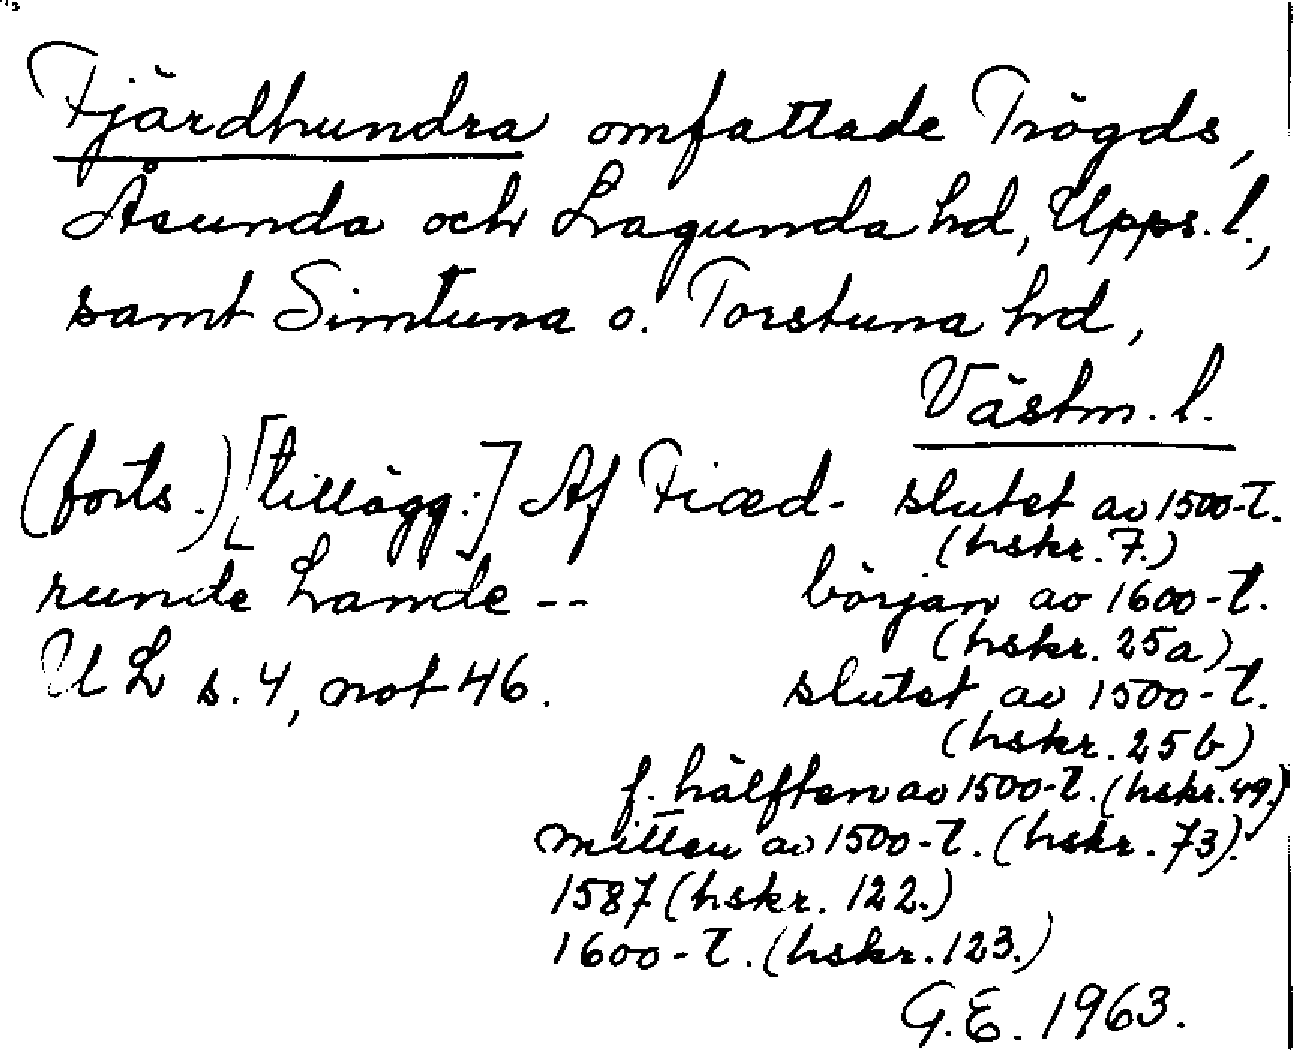 Fjärdhundra omfattade Trögds,
Åsunda och Lagunda hd, Upps. l.,
samt Simtuna o. Torstuna hd,
Västm. l.
(forts.) [tillägg:] Af Fiæd- slutet av 1500-t.
(hskr. 7.)
runde Lande -- början av 1600-t.
(hskr. 25a)
UL s. 4, not 46. slutet av 1500-t.
(hskr. 25b)
f. hälften av 1500-t. (hskr. 49.)
mitten av 1500-t. (hskr. 73).
1587 (hskr. 122.)
1600-t. (hskr. 123.)
G.E. 1963.